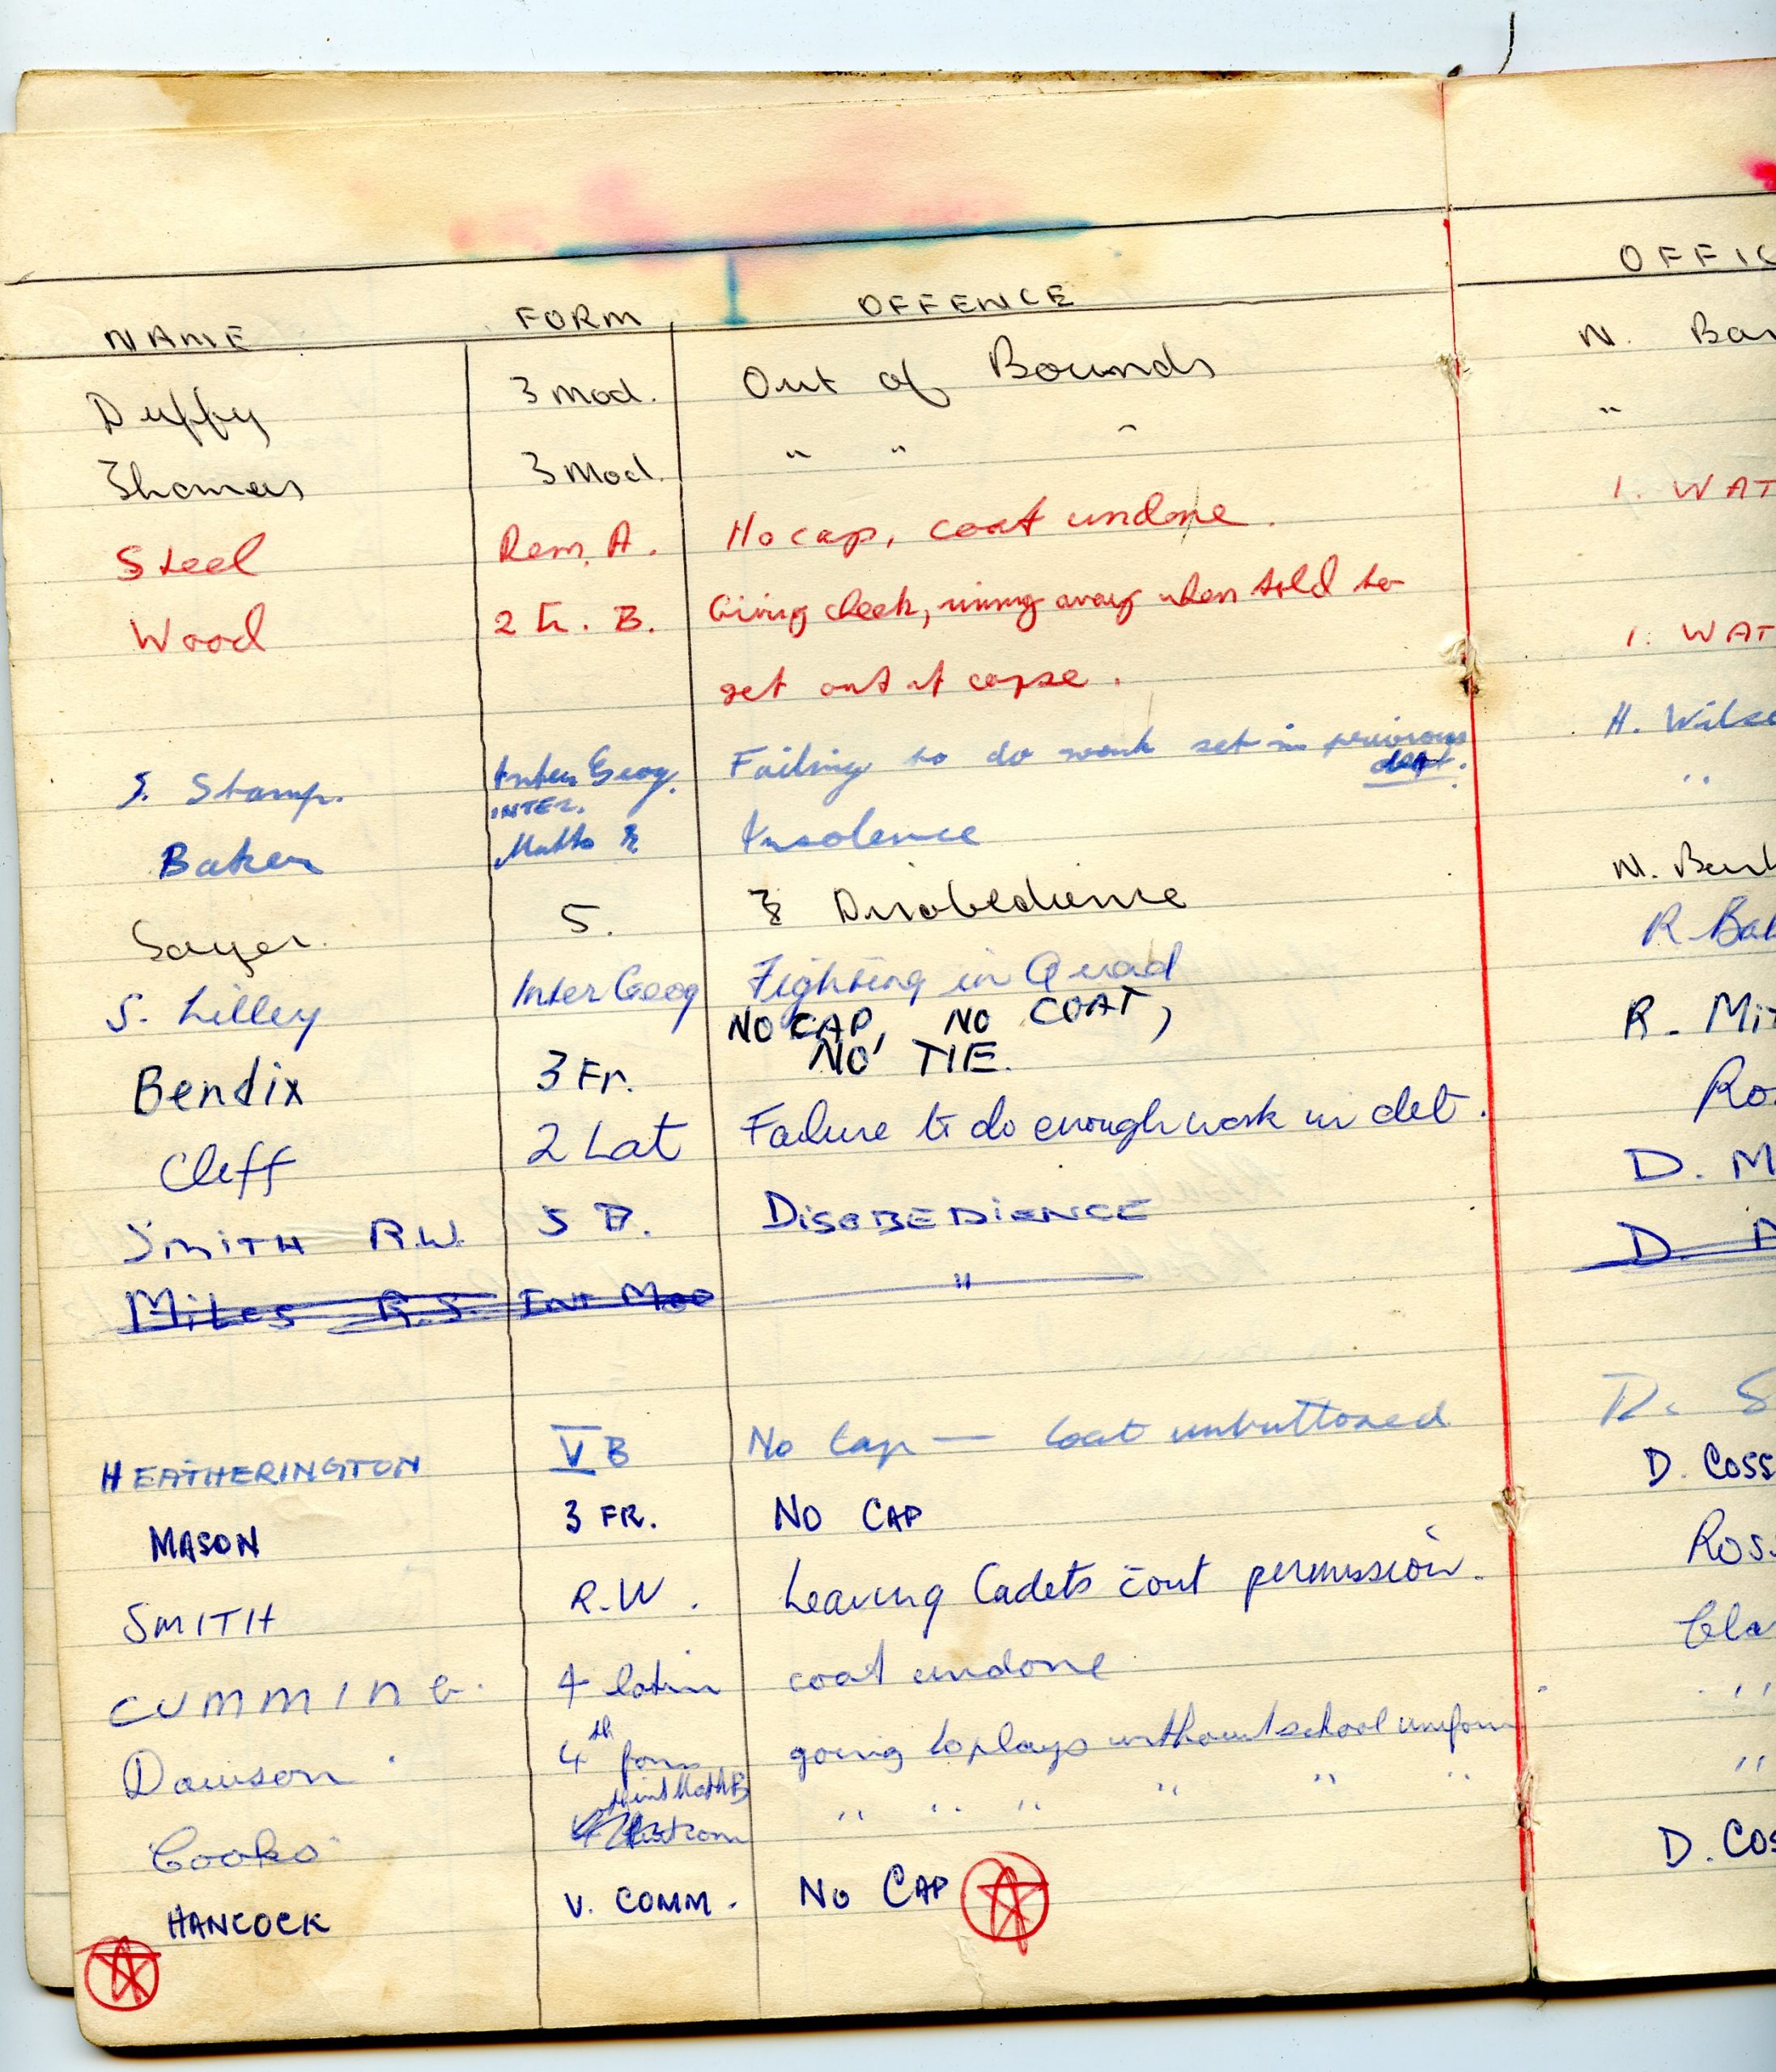 NAME FORM OFFENCE OFFIC
Duffy 3 Mod. Out of Bounds N. Bar
Thomas 3 Mod. " " " "
Steel Rem. A. No cap, coat undone. I. WAT
Wood 2 Lt. B. Giving cheek, runing away when told to I. WAT
get out of copse.
S. Stamp. Inter Geog. Failing to do work set in previous det. H. Wils
Baker INTER. Maths Insolence "
Sayer. 5. Disobedience N. Bar
S. Lilley Inter Geog Fighting in Quad R Bal
Bendix 3 Fr. NO CAP, NO COAT, R. Mit
NO TIE.
Cleff 2 Lat Failure to do enough work in det. Ros
SMITH R.W. 5 B. DISOBEDIENCE D. M
Miles R.S. Int Mod " D.
HEATHERINGTON V B No Cap — Coat unbuttoned D. S
MASON 3 FR. NO CAP D. COSS
SMITH R.W. Leaving Cadets c̄out permission. Ross
CUMMING. 4 latin coat undone Cla
Dawson 4th form going to plays without school uniform "
Cooke int Math B " " " " " " "
HANCOCK V. COMM. NO CAP D. COS